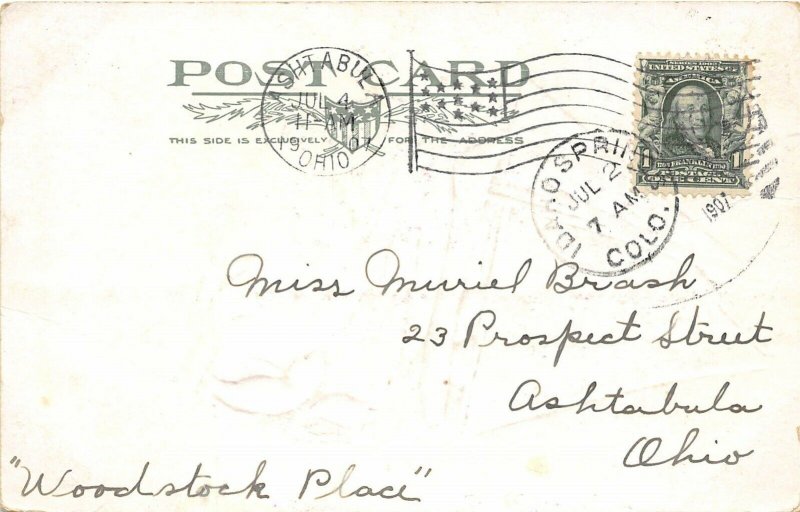 POST CARD
THIS SIDE IS EXCLUSIVELY FOR THE ADDRESS
ASHTABULA
JUL 4
11-AM
1907
OHIO
SERIES 1902
UNITED STATES OF
AMERICA
FRANKLIN
POSTAGE
1 ONE CENT 1
IDAHO SPRINGS
JUL 2
7 AM
1907
COLO.
Miss Muriel Brash
23 Prospect Street
Ashtabula
Ohio
"Woodstock Place"